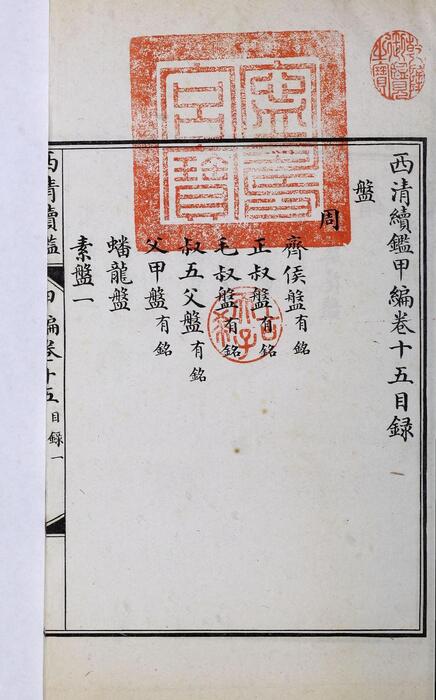 西清續鑑甲編卷十五目録
盤
周
齊侯盤有銘
正叔盤有銘
毛叔盤有銘
叔五父盤有銘
父甲盤有銘
蟠龍盤
素盤一
西清續鑑 甲編卷十五 目録 一